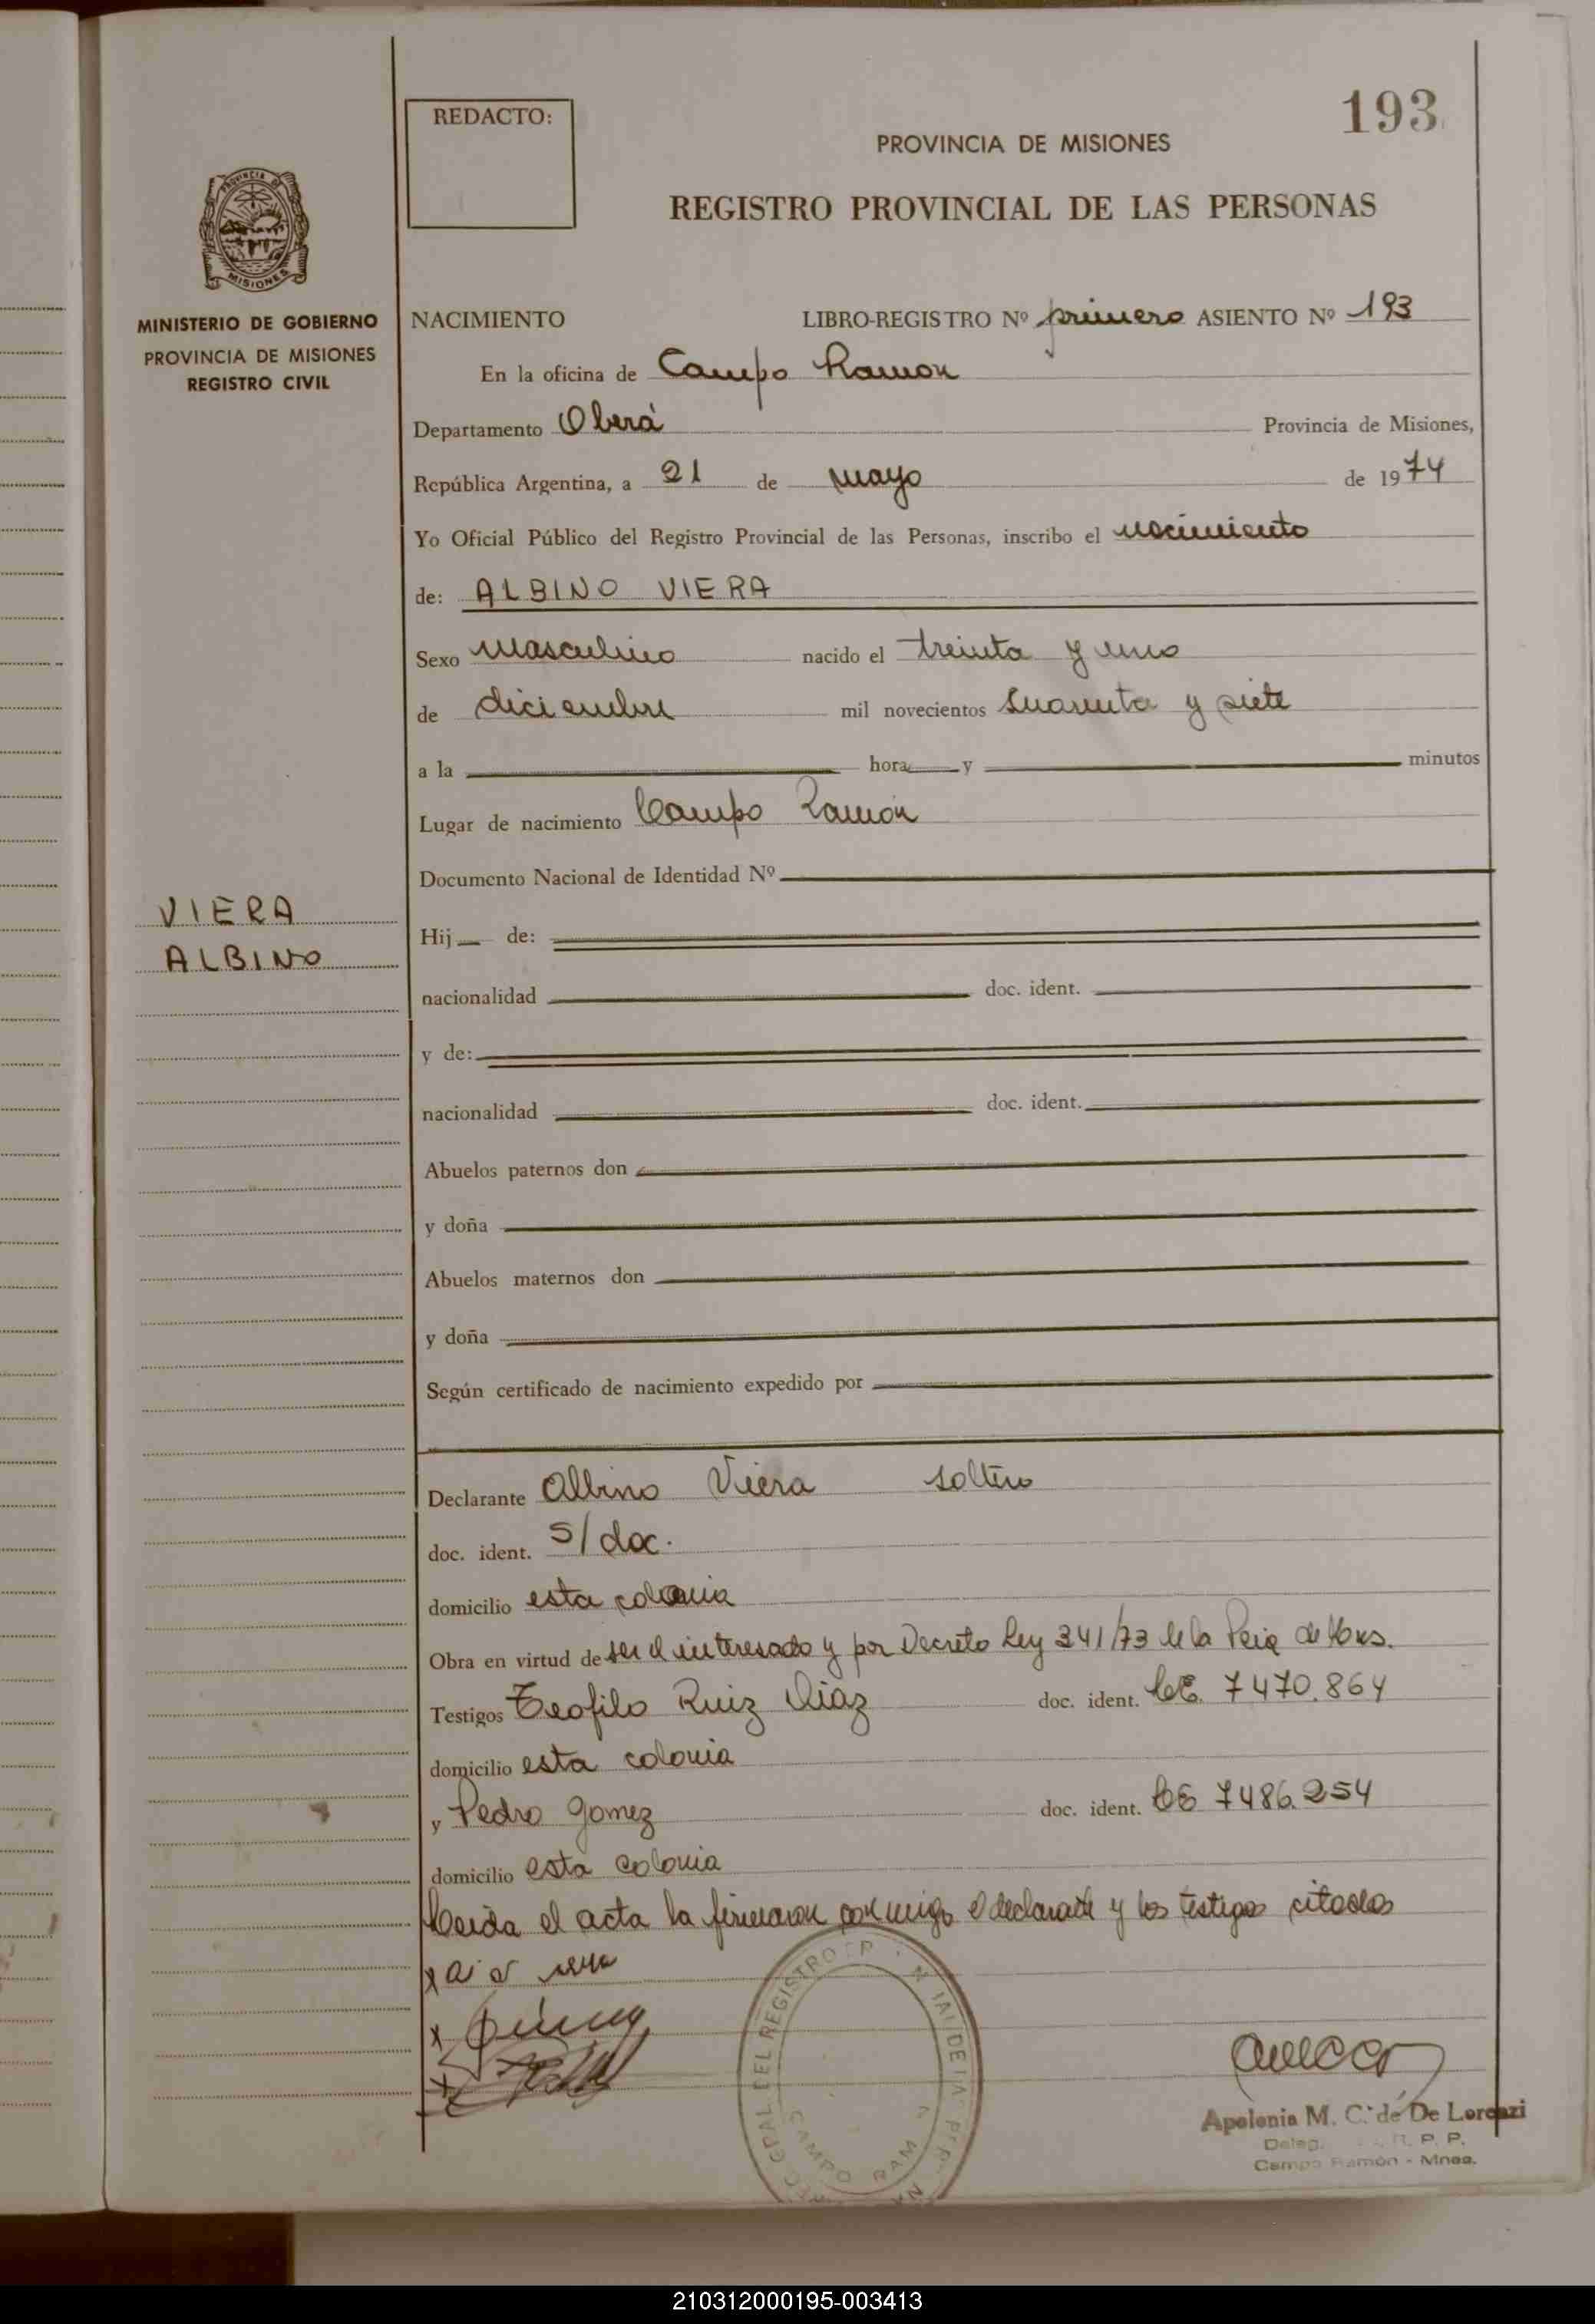 193
REDACTO:
PROVINCIA DE MISIONES
REGISTRO PROVINCIAL DE LAS PERSONAS
PROVINCIA DE
MISIONES
MINISTERIO DE GOBIERNO
PROVINCIA DE MISIONES
REGISTRO CIVIL
NACIMIENTO LIBRO-REGISTRO Nº primero ASIENTO Nº 193
En la oficina de Campo Ramon
Departamento Oberá Provincia de Misiones,
República Argentina, a 21 de mayo de 1974
Yo Oficial Público del Registro Provincial de las Personas, inscribo el nacimiento
de: ALBINO VIERA
Sexo masculino nacido el treinta y uno
de diciembre mil novecientos cuarenta y siete
a la hora y minutos
Lugar de nacimiento Campo Ramón
Documento Nacional de Identidad Nº
VIERA
ALBINO
Hij de:
nacionalidad doc. ident.
y de:
nacionalidad doc. ident.
Abuelos paternos don
y doña
Abuelos maternos don
y doña
Según certificado de nacimiento expedido por
Declarante Albino Viera soltero
doc. ident. S/doc.
domicilio esta colonia
Obra en virtud de ser el interesado y por Decreto Ley 341/73 de la Pcia de Mnes.
Testigos Teofilo Ruiz Diaz doc. ident. 7470.864
domicilio esta colonia
y Pedro Gomez doc. ident. 7486.254
domicilio esta colonia
Leida el acta la firmaron conmigo el declarante y los testigos citados
DEL REGISTRO
CAMPO RAM
Apolonia M. C. de De Lorenzi
Deleg. R. P. P.
Campo Ramón - Mnes.
210312000195-003413